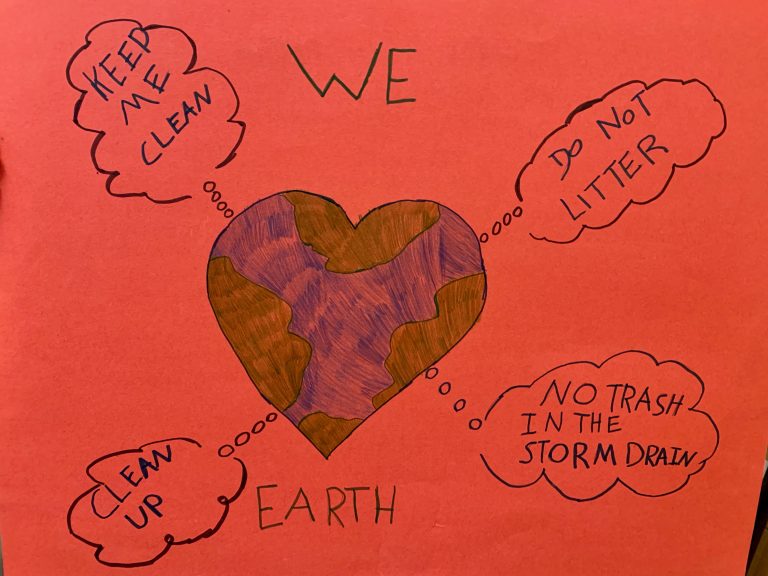 KEEP
ME
CLEAN
WE
DO NOT
LITTER
NO TRASH
IN THE
STORM DRAIN
CLEAN
UP
EARTH